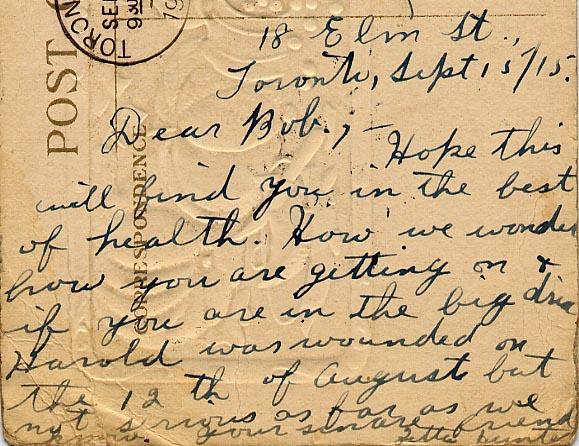 TORON
SEP
930
19
POST
CORRESPONDENCE
18 Elm St.,
Toronto, Sept 15/15.
Dear Bob,;-
Hope this
will find you in the best
of health. How we wonder
how you are getting on &
if you are in the big drive
Harold was wounded on
the 12th of August but
not serious as far as we
know. Your sincere friend